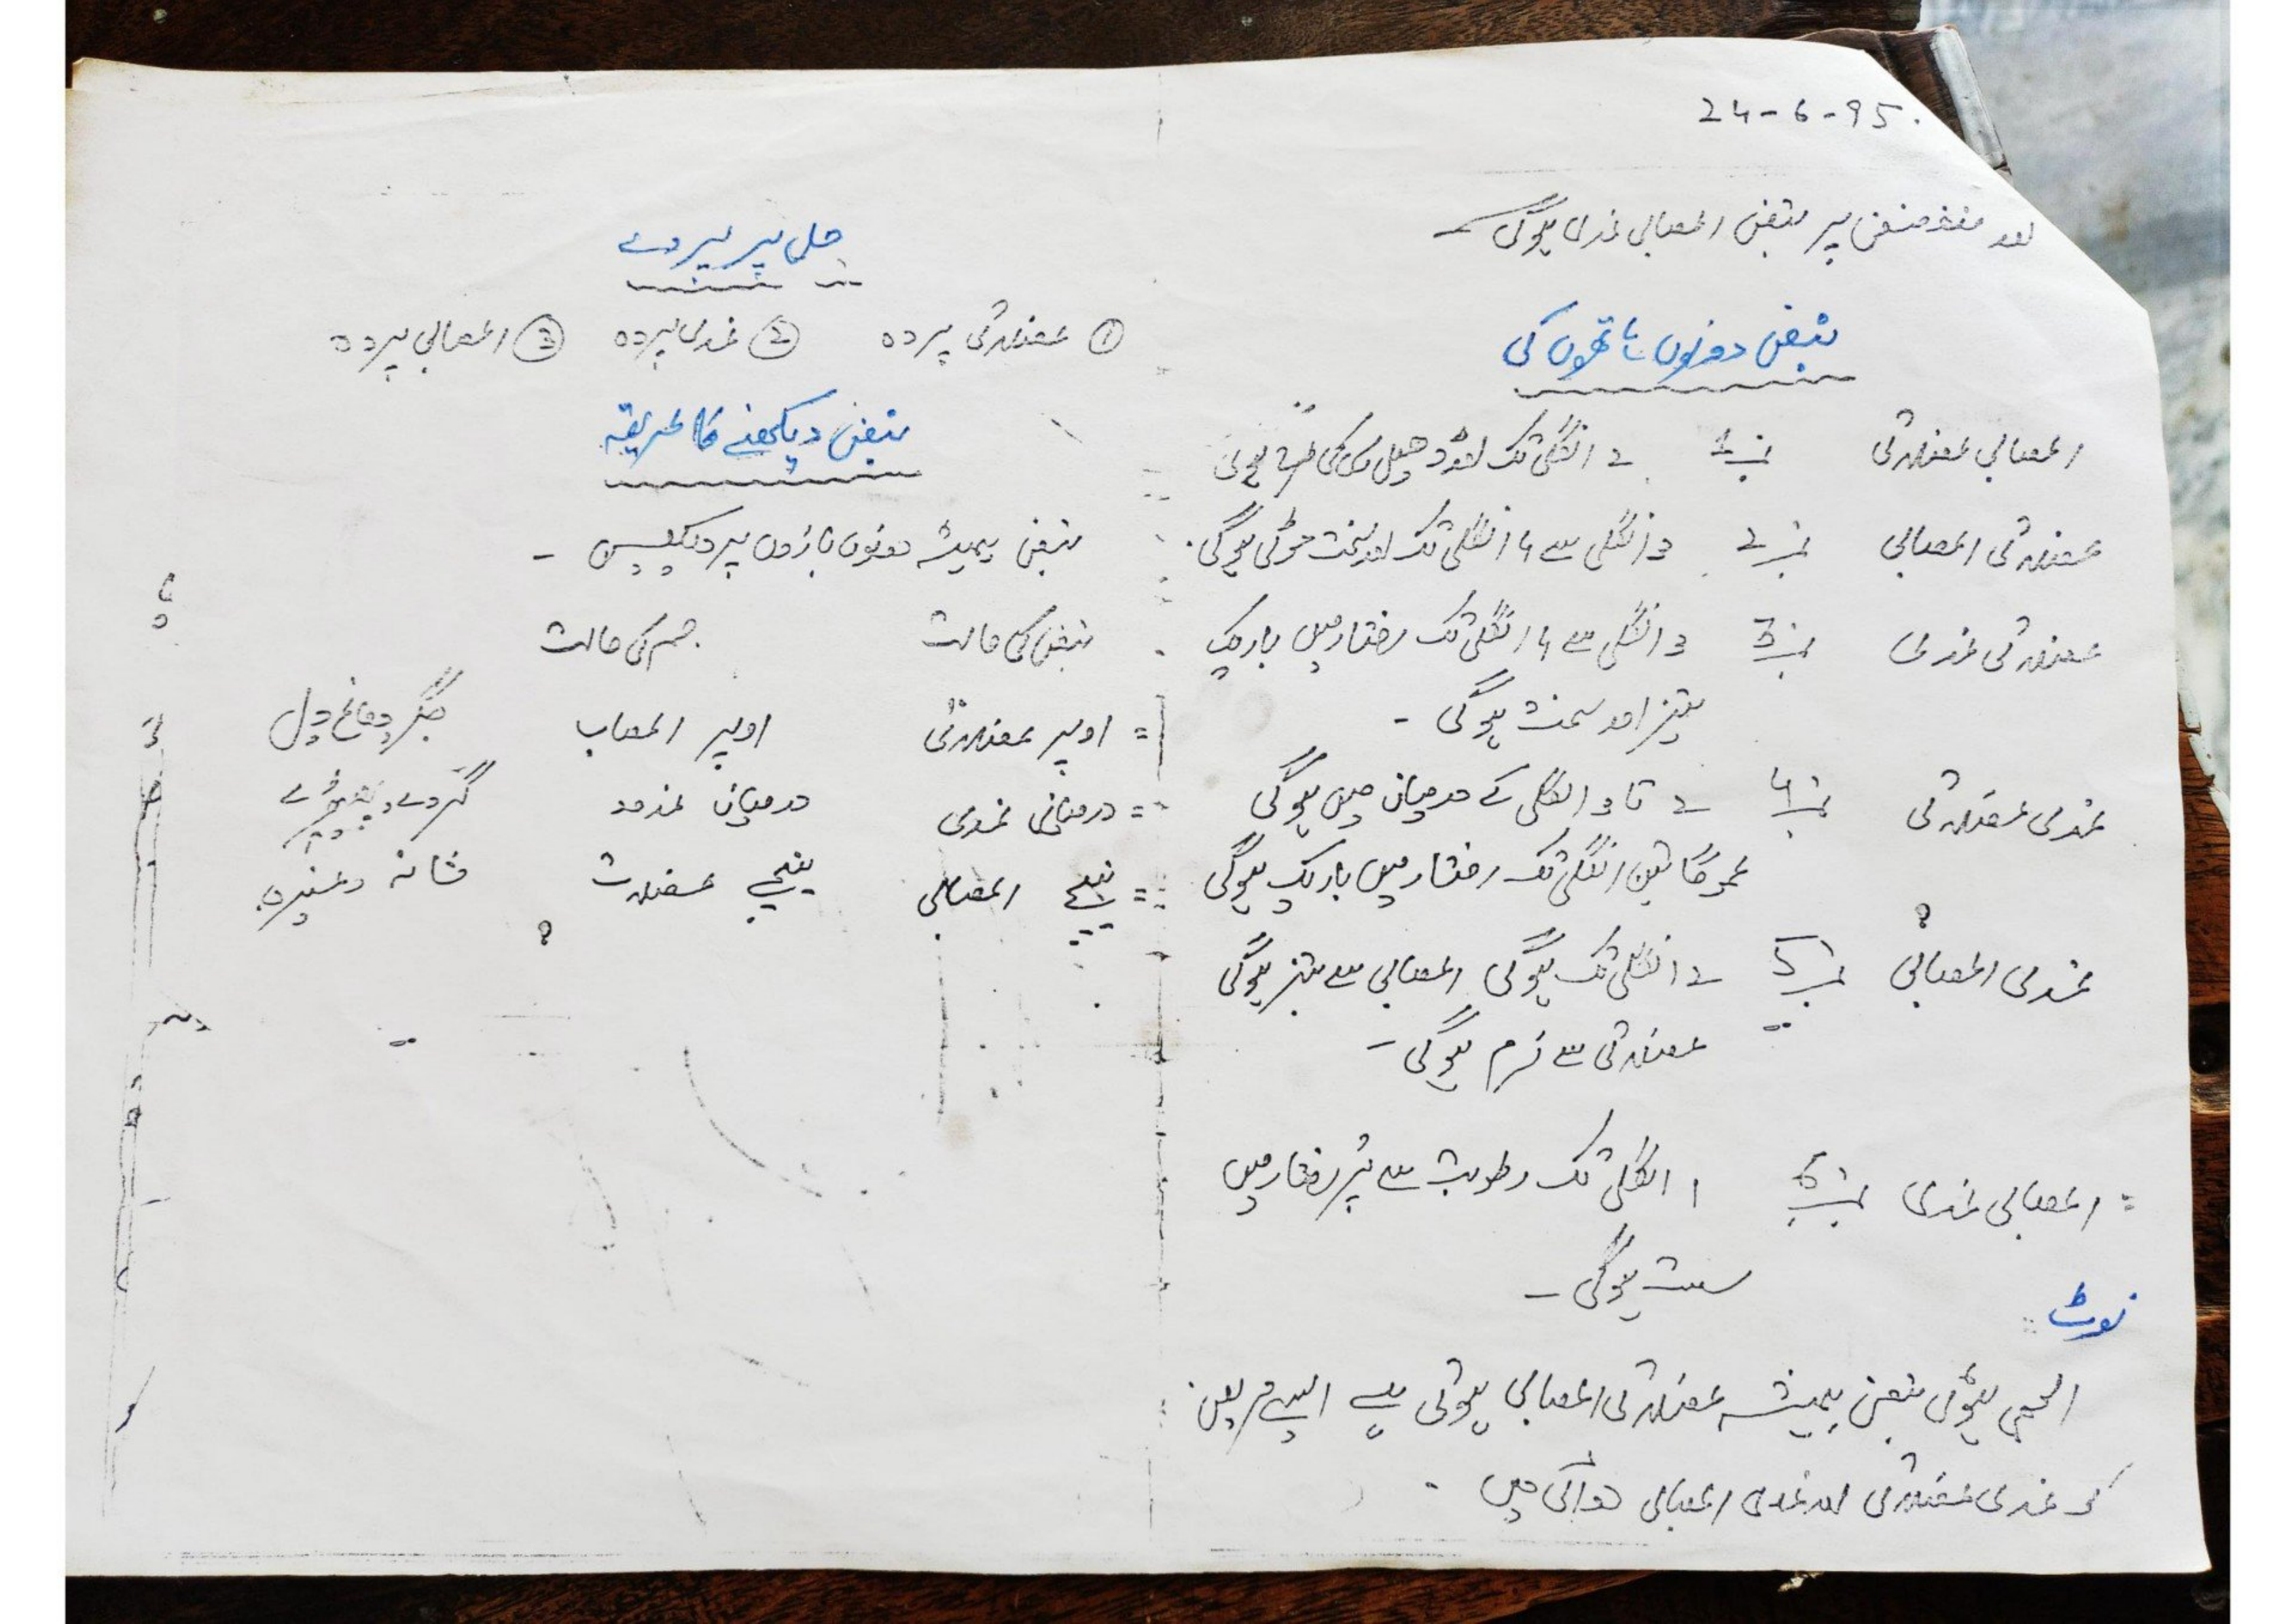 24-6-95.
پر نبض اعصابی غدی ہوگی
نبض دونوں ہاتھوں کی
اعصابی عضلاتی نمبر 1 2 انگلی تک اور ڈھیلی ہوگی
عضلاتی اعصابی نمبر 2 3 انگلی سے 4 انگلی تک اور سخت موٹی ہوگی۔
عضلاتی غدی نمبر 3 3 انگلی سے 4 انگلی تک رفتار میں باریک
تیز اور سخت ہوگی -
غدی عضلاتی نمبر 4 2 تا 3 انگلی کے درمیان میں ہوگی
عموماً تین انگلی تک رفتار میں باریک ہوگی
غدی اعصابی نمبر 5 2 انگلی تک ہوگی اعصابی سے تیز ہوگی
عضلاتی سے نرم ہوگی -
= اعصابی غدی نمبر 6 1 انگلی تک رطوبت سے پُر رفتار میں
سست ہوگی -
نوٹ
ہوئی نبض ہمیشہ عضلاتی اعصابی ہوتی ہے ایسے مریض
کو غدی عضلاتی اور غدی اعصابی دوائی دیں
پردے
① عضلاتی پردہ ② غدی پردہ ③ اعصابی پردہ
نبض دیکھنے کا طریقہ
نبض ہمیشہ دونوں بازوں پر دیکھیں -
نبض کی حالت جسم کی حالت
= اوپر عضلاتی اوپر اعصاب جگر دماغ دل
= درمیانی غدی درمیان غدود گردے پھیپھڑے
= نیچے اعصابی نیچے عضلات مثانہ وغیرہ